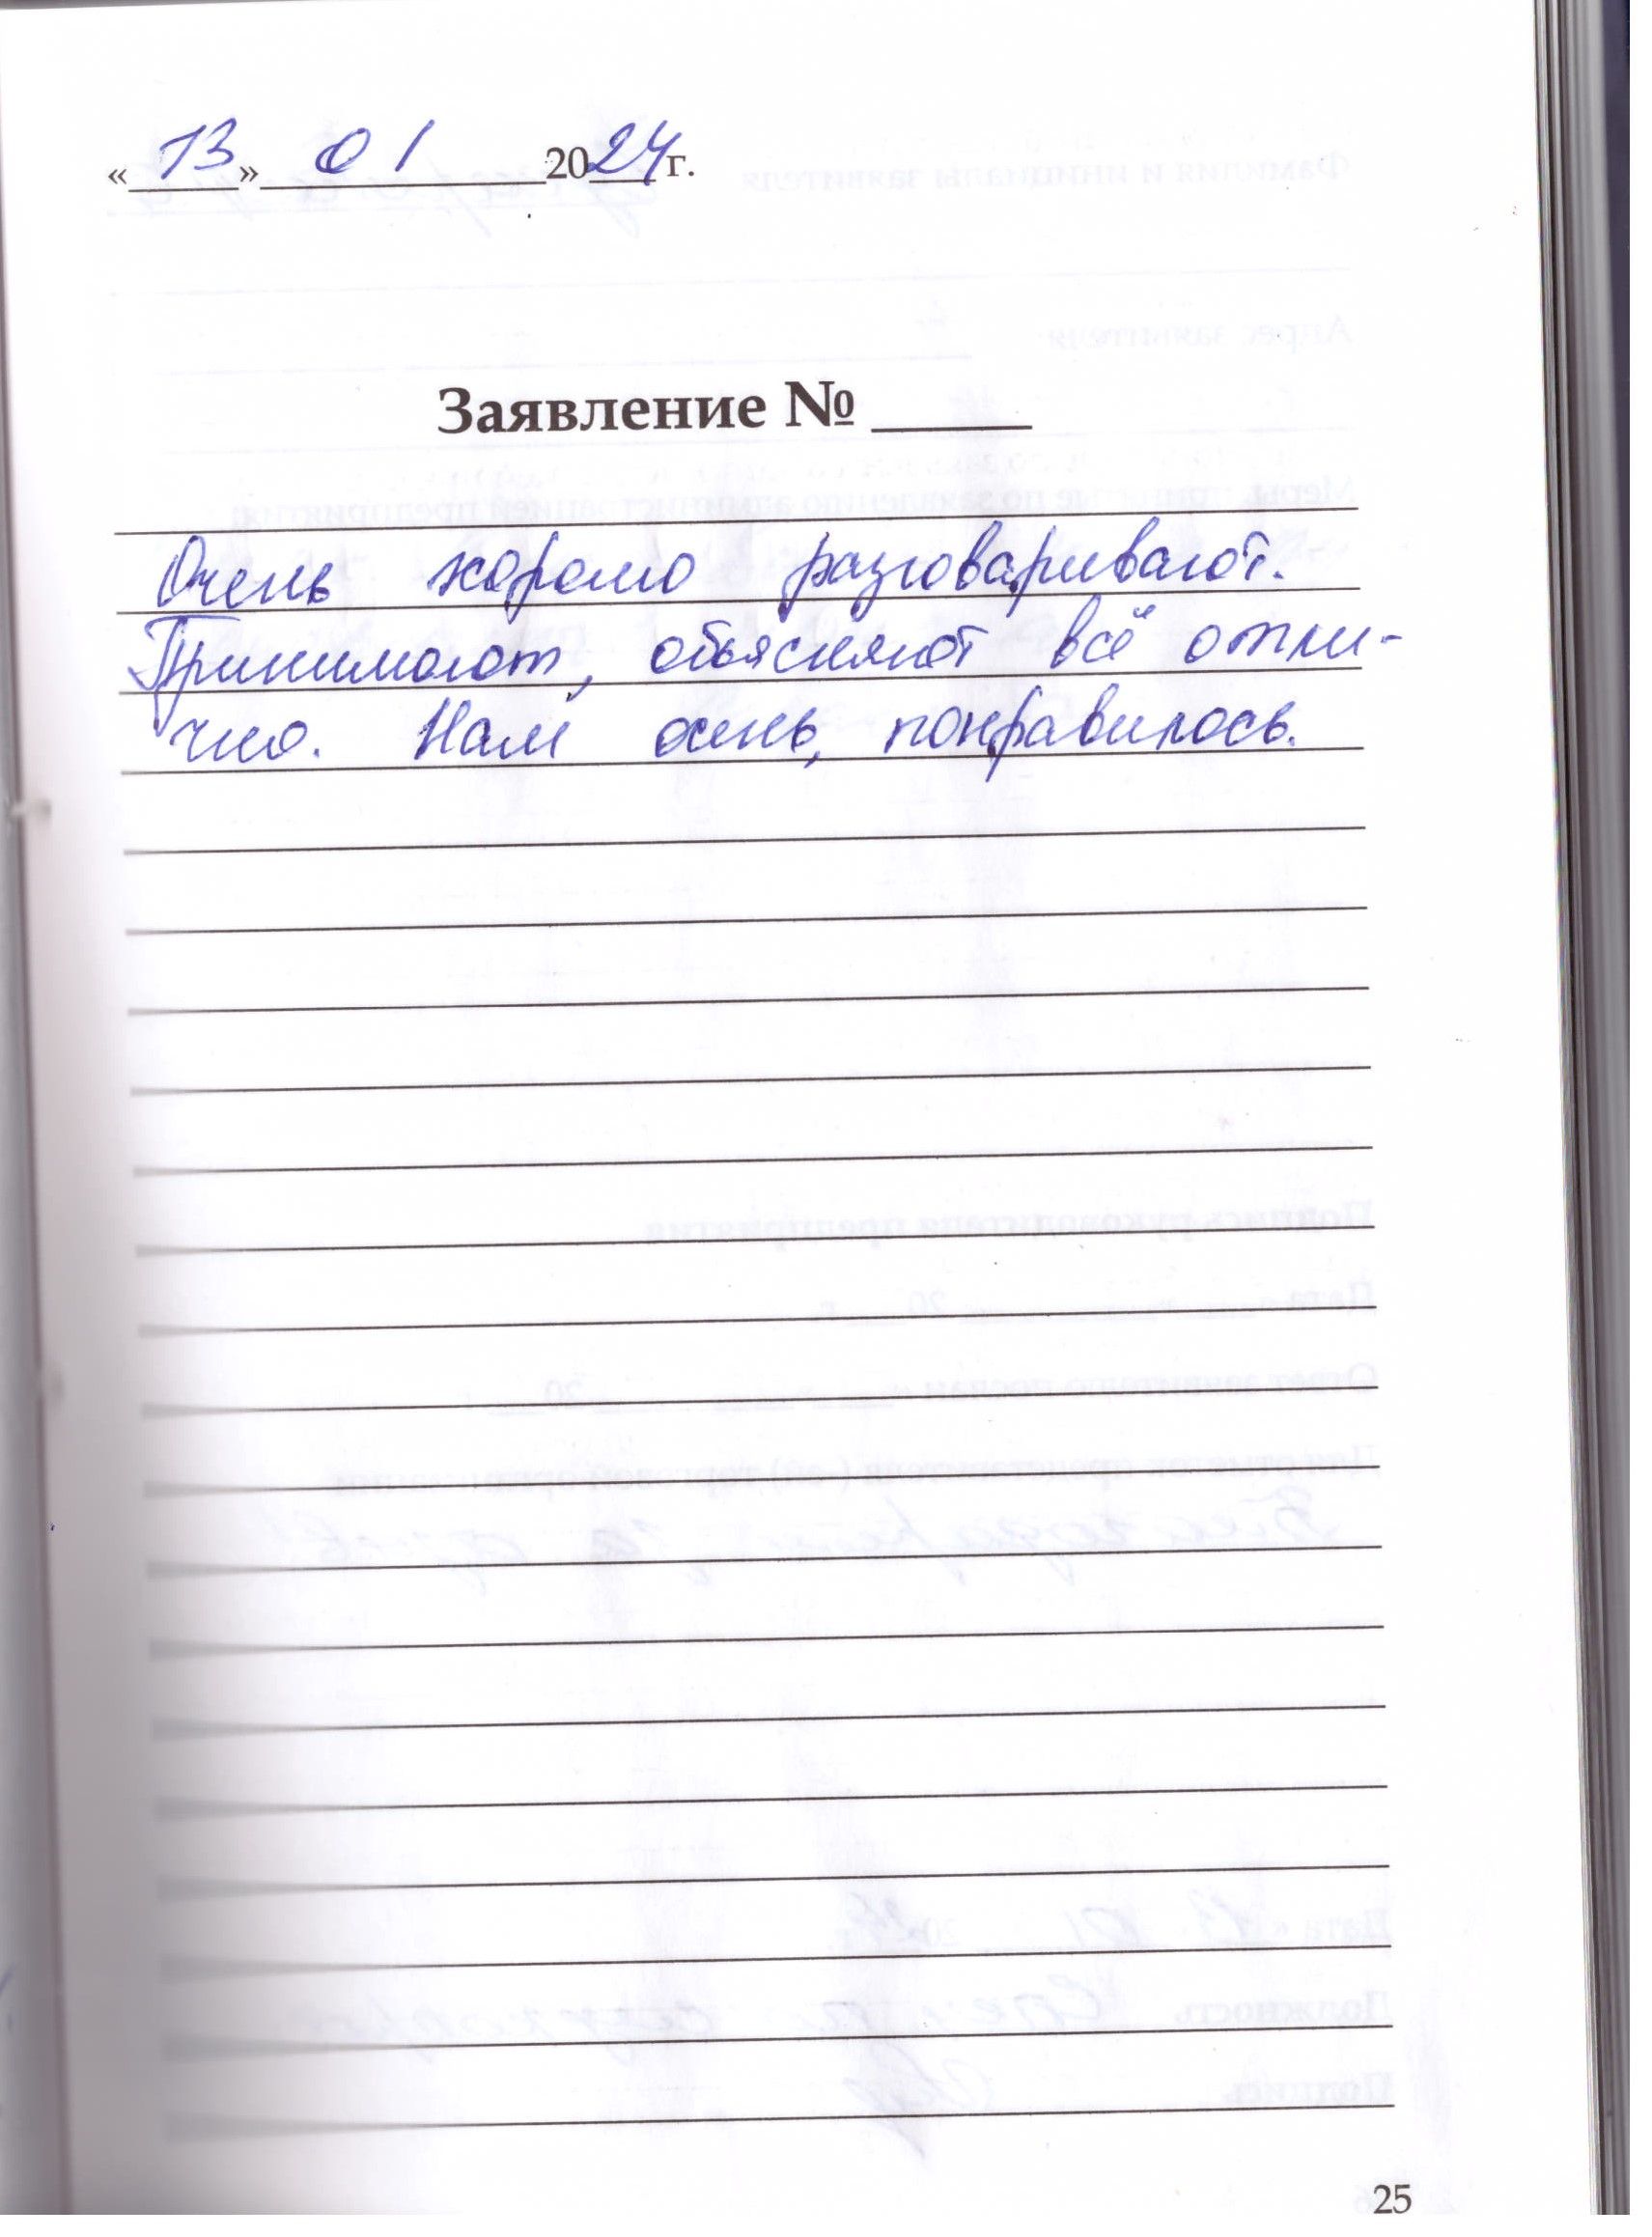 «13» 01 2024 г.
Заявление № ____
Очень хорошо разговаривают.
Принимают, объясняют всё отли-
чно. Нам очень, понравилось.
25